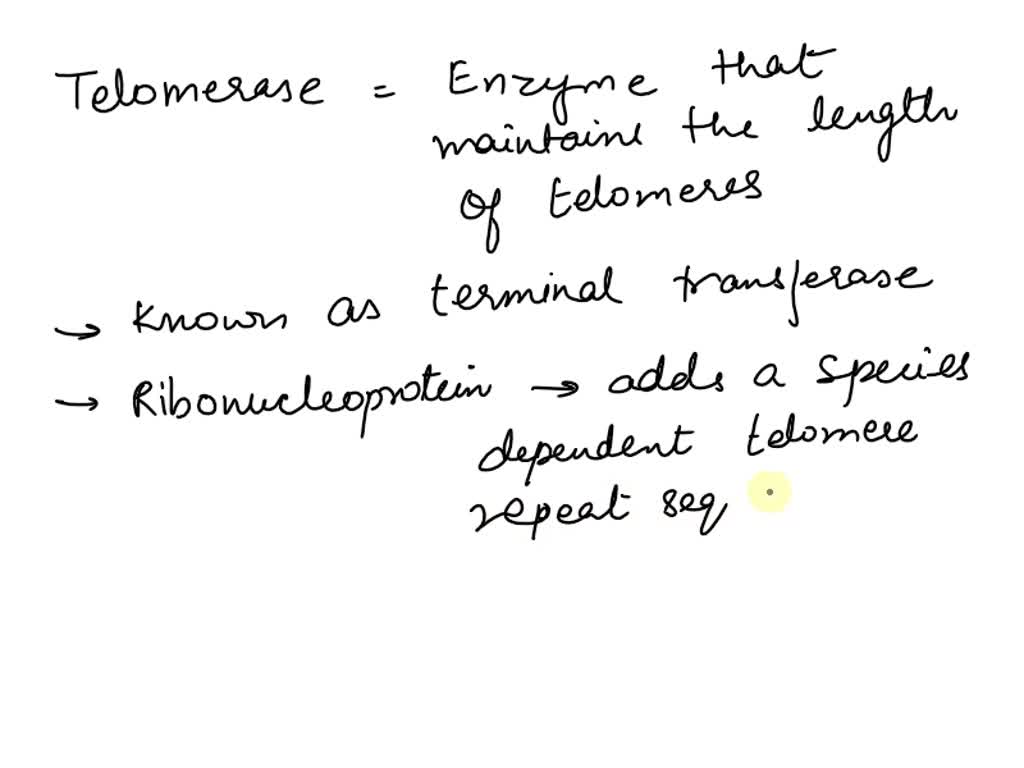 Telomerase = Enzyme that
maintains the length
of telomeres
→ Known as terminal transferase
→ Ribonucleoprotein → adds a species
dependent telomere
repeat seq